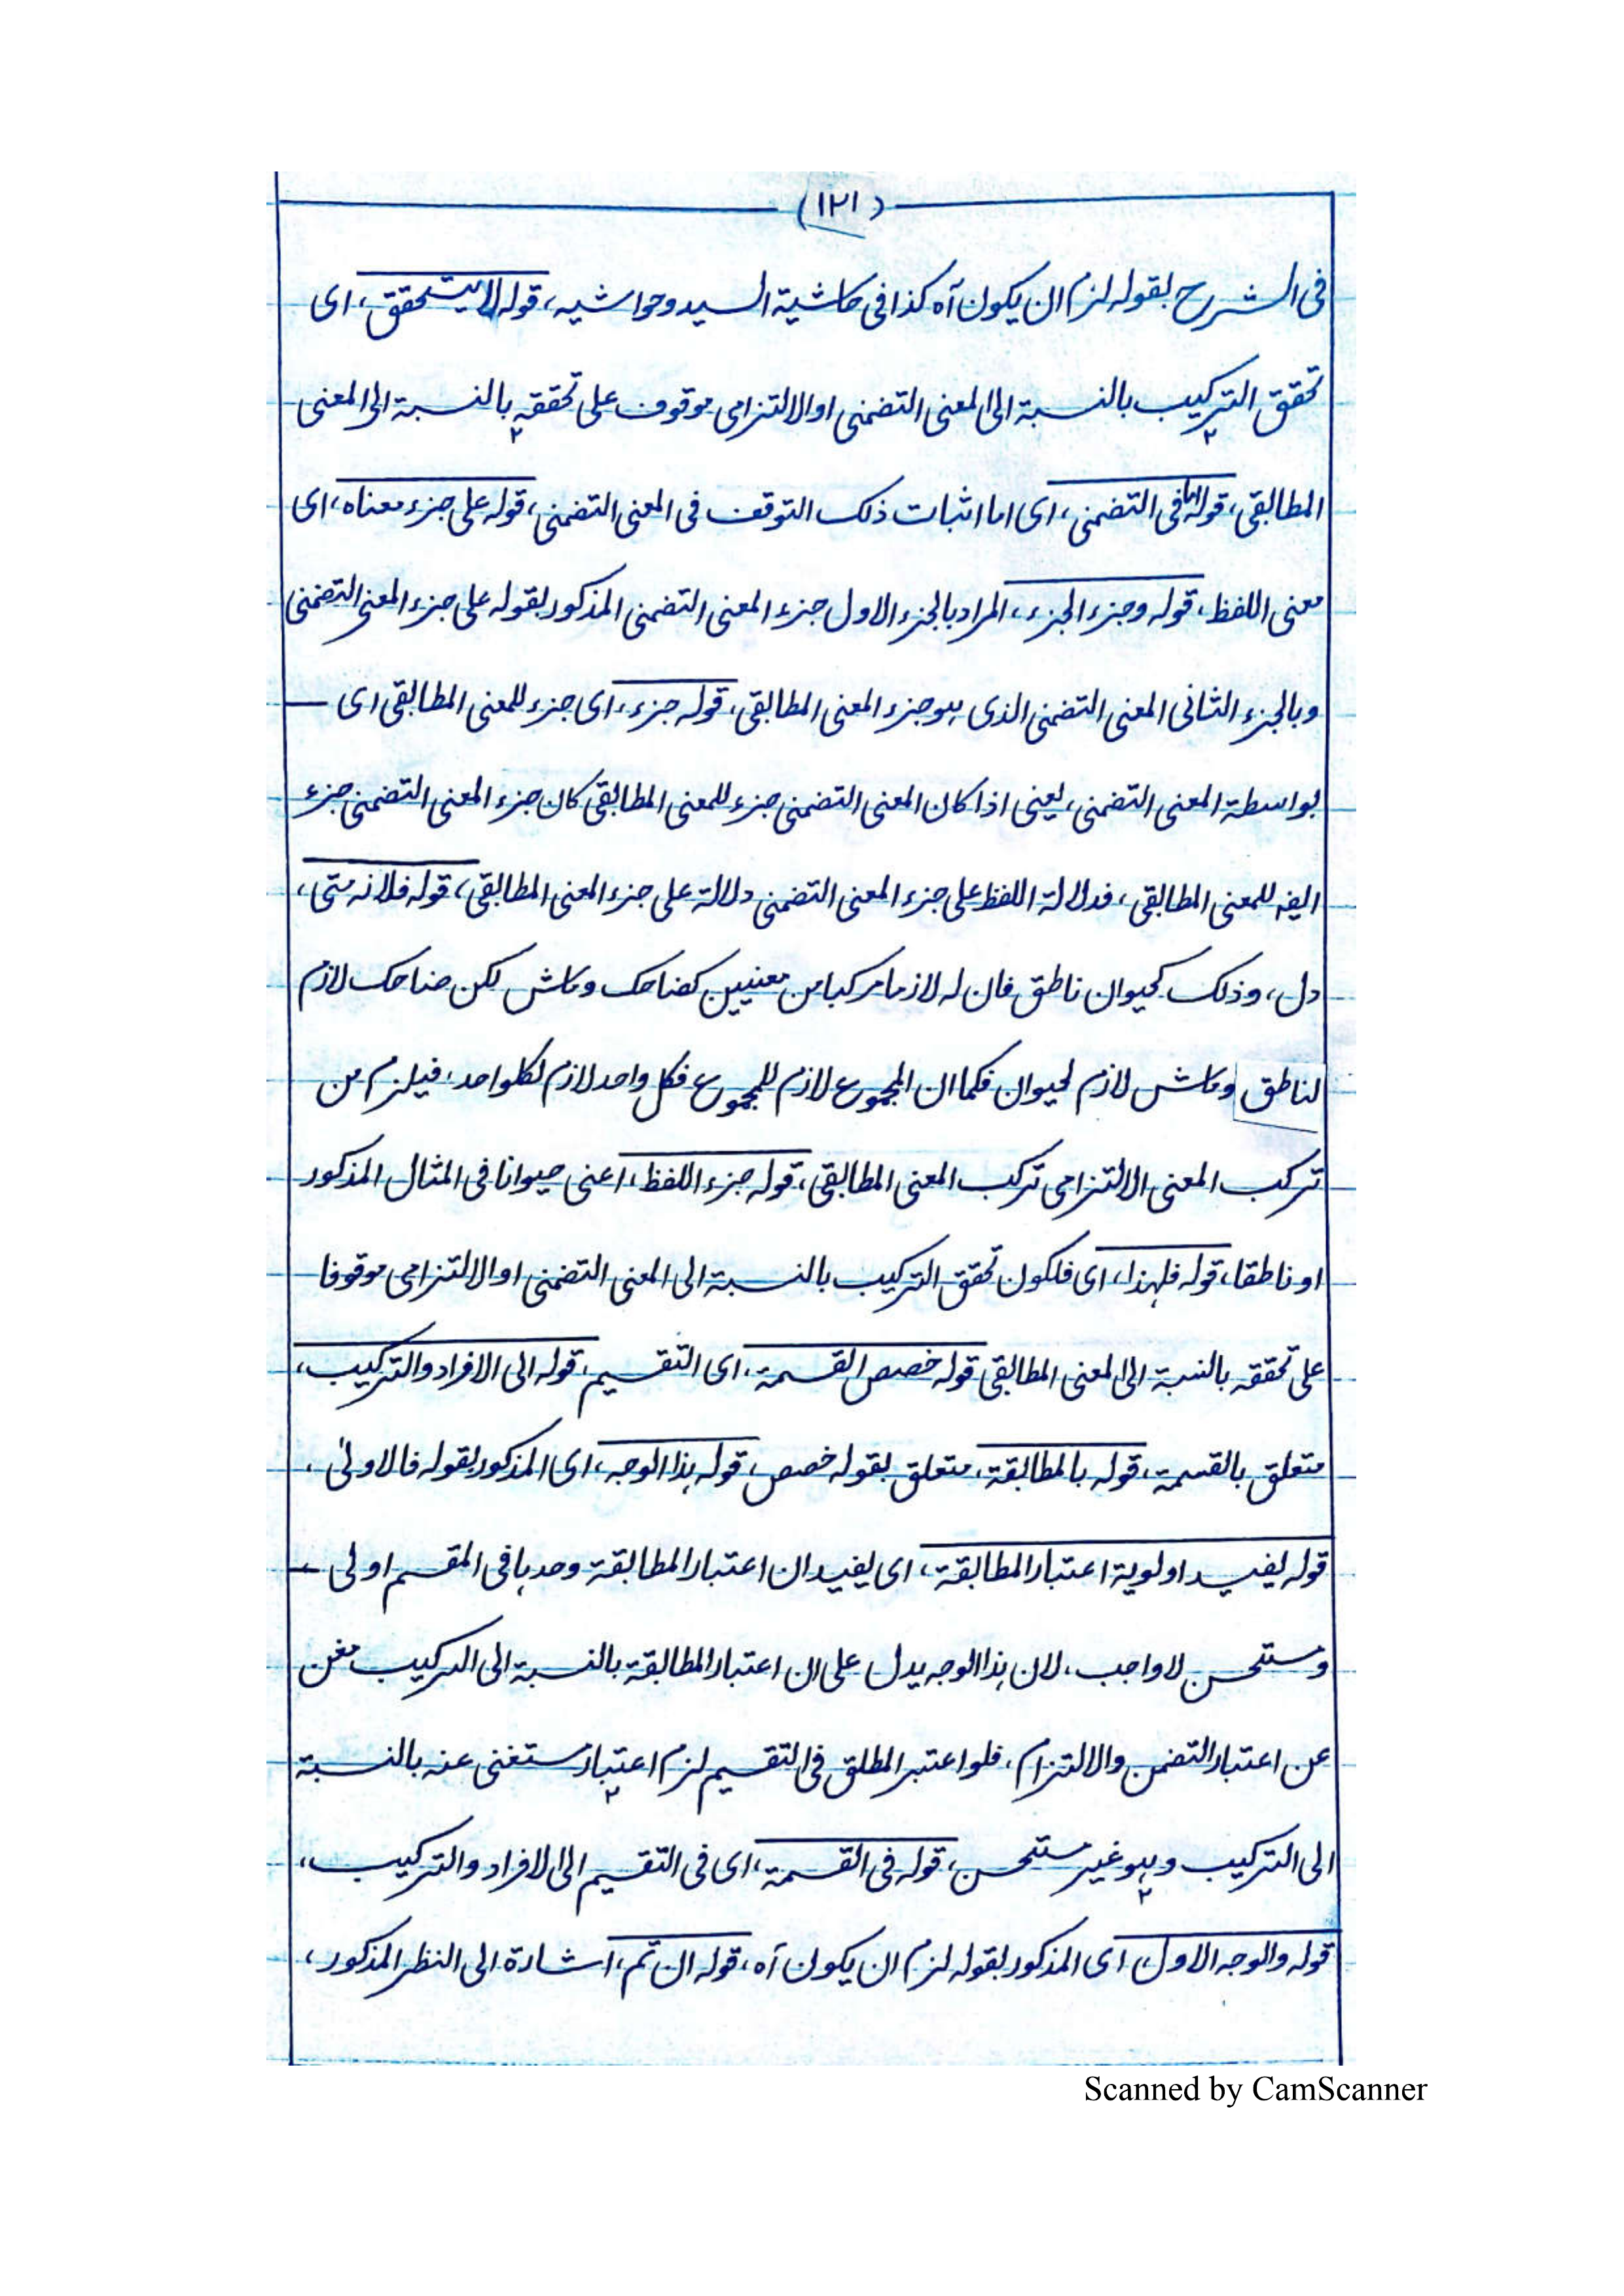 (١٢١)
فى الشرح بقوله لزم ان يكون آه كذا فى حاشية السيد وحواشيه، قوله لا يتحقق، اى
تحقق التركيب بالنسبة الى المعنى التضمنى او الالتزامى موقوف على تحققه بالنسبة الى المعنى
المطابقى، قوله اما فى التضمنى، اى اما اثبات ذلك التوقف فى المعنى التضمنى، قوله على جزء معناه، اى
معنى اللفظ، قوله وجزء الجزء، المراد بالجزء الاول جزء المعنى التضمنى المذكور بقوله على جزء المعنى التضمنى
وبالجزء الثانى المعنى التضمنى الذى هو جزء المعنى المطابقى، قوله جزء، اى جزء للمعنى المطابقى اى
بواسطة المعنى التضمنى، يعنى اذا كان المعنى التضمنى جزء للمعنى المطابقى كان جزء المعنى التضمنى جزء
ايضا للمعنى المطابقى، فدلالة اللفظ على جزء المعنى التضمنى دلالة على جزء المعنى المطابقى، قوله فلانه متى،
دل، وذلك كحيوان ناطق فان له لازما مركبا من معنيين كضاحك وماش لكن ضاحك لازم
لناطق وماش لازم لحيوان فكما ان المجموع لازم للمجموع فكل واحد لازم لكلواحد، فيلزم من
تركب المعنى الالتزامى تركب المعنى المطابقى، قوله جزء اللفظ، اعنى حيوانا فى المثال المذكور
او ناطقا، قوله فلهذا، اى فلكون تحقق التركيب بالنسبة الى المعنى التضمنى او الالتزامى موقوفا
على تحققه بالنسبة الى المعنى المطابقى قوله خصص القسمة، اى التقسيم، قوله الى الافراد والتركيب،
متعلق بالقسمة، قوله بالمطابقة، متعلق بقوله خصص، قوله هذا الوجه، اى المذكور بقوله فالاولى،
قوله يفيد اولوية اعتبار المطابقة، اى يفيد ان اعتبار المطابقة وحدها فى المقسم اولى
ومستحسن لا واجب، لان هذا الوجه يدل على ان اعتبار المطابقة بالنسبة الى التركيب مغن
عن اعتبار التضمن والالتزام، فلو اعتبر المطلق فى التقسيم لزم اعتبار مستغنى عنه بالنسبة
الى التركيب وهو غير مستحسن، قوله فى القسمة، اى فى التقسيم الى الافراد والتركيب،
قوله والوجه الاول، اى المذكور بقوله لزم ان يكون آه، قوله ان تم، اشارة الى النظر المذكور،
Scanned by CamScanner